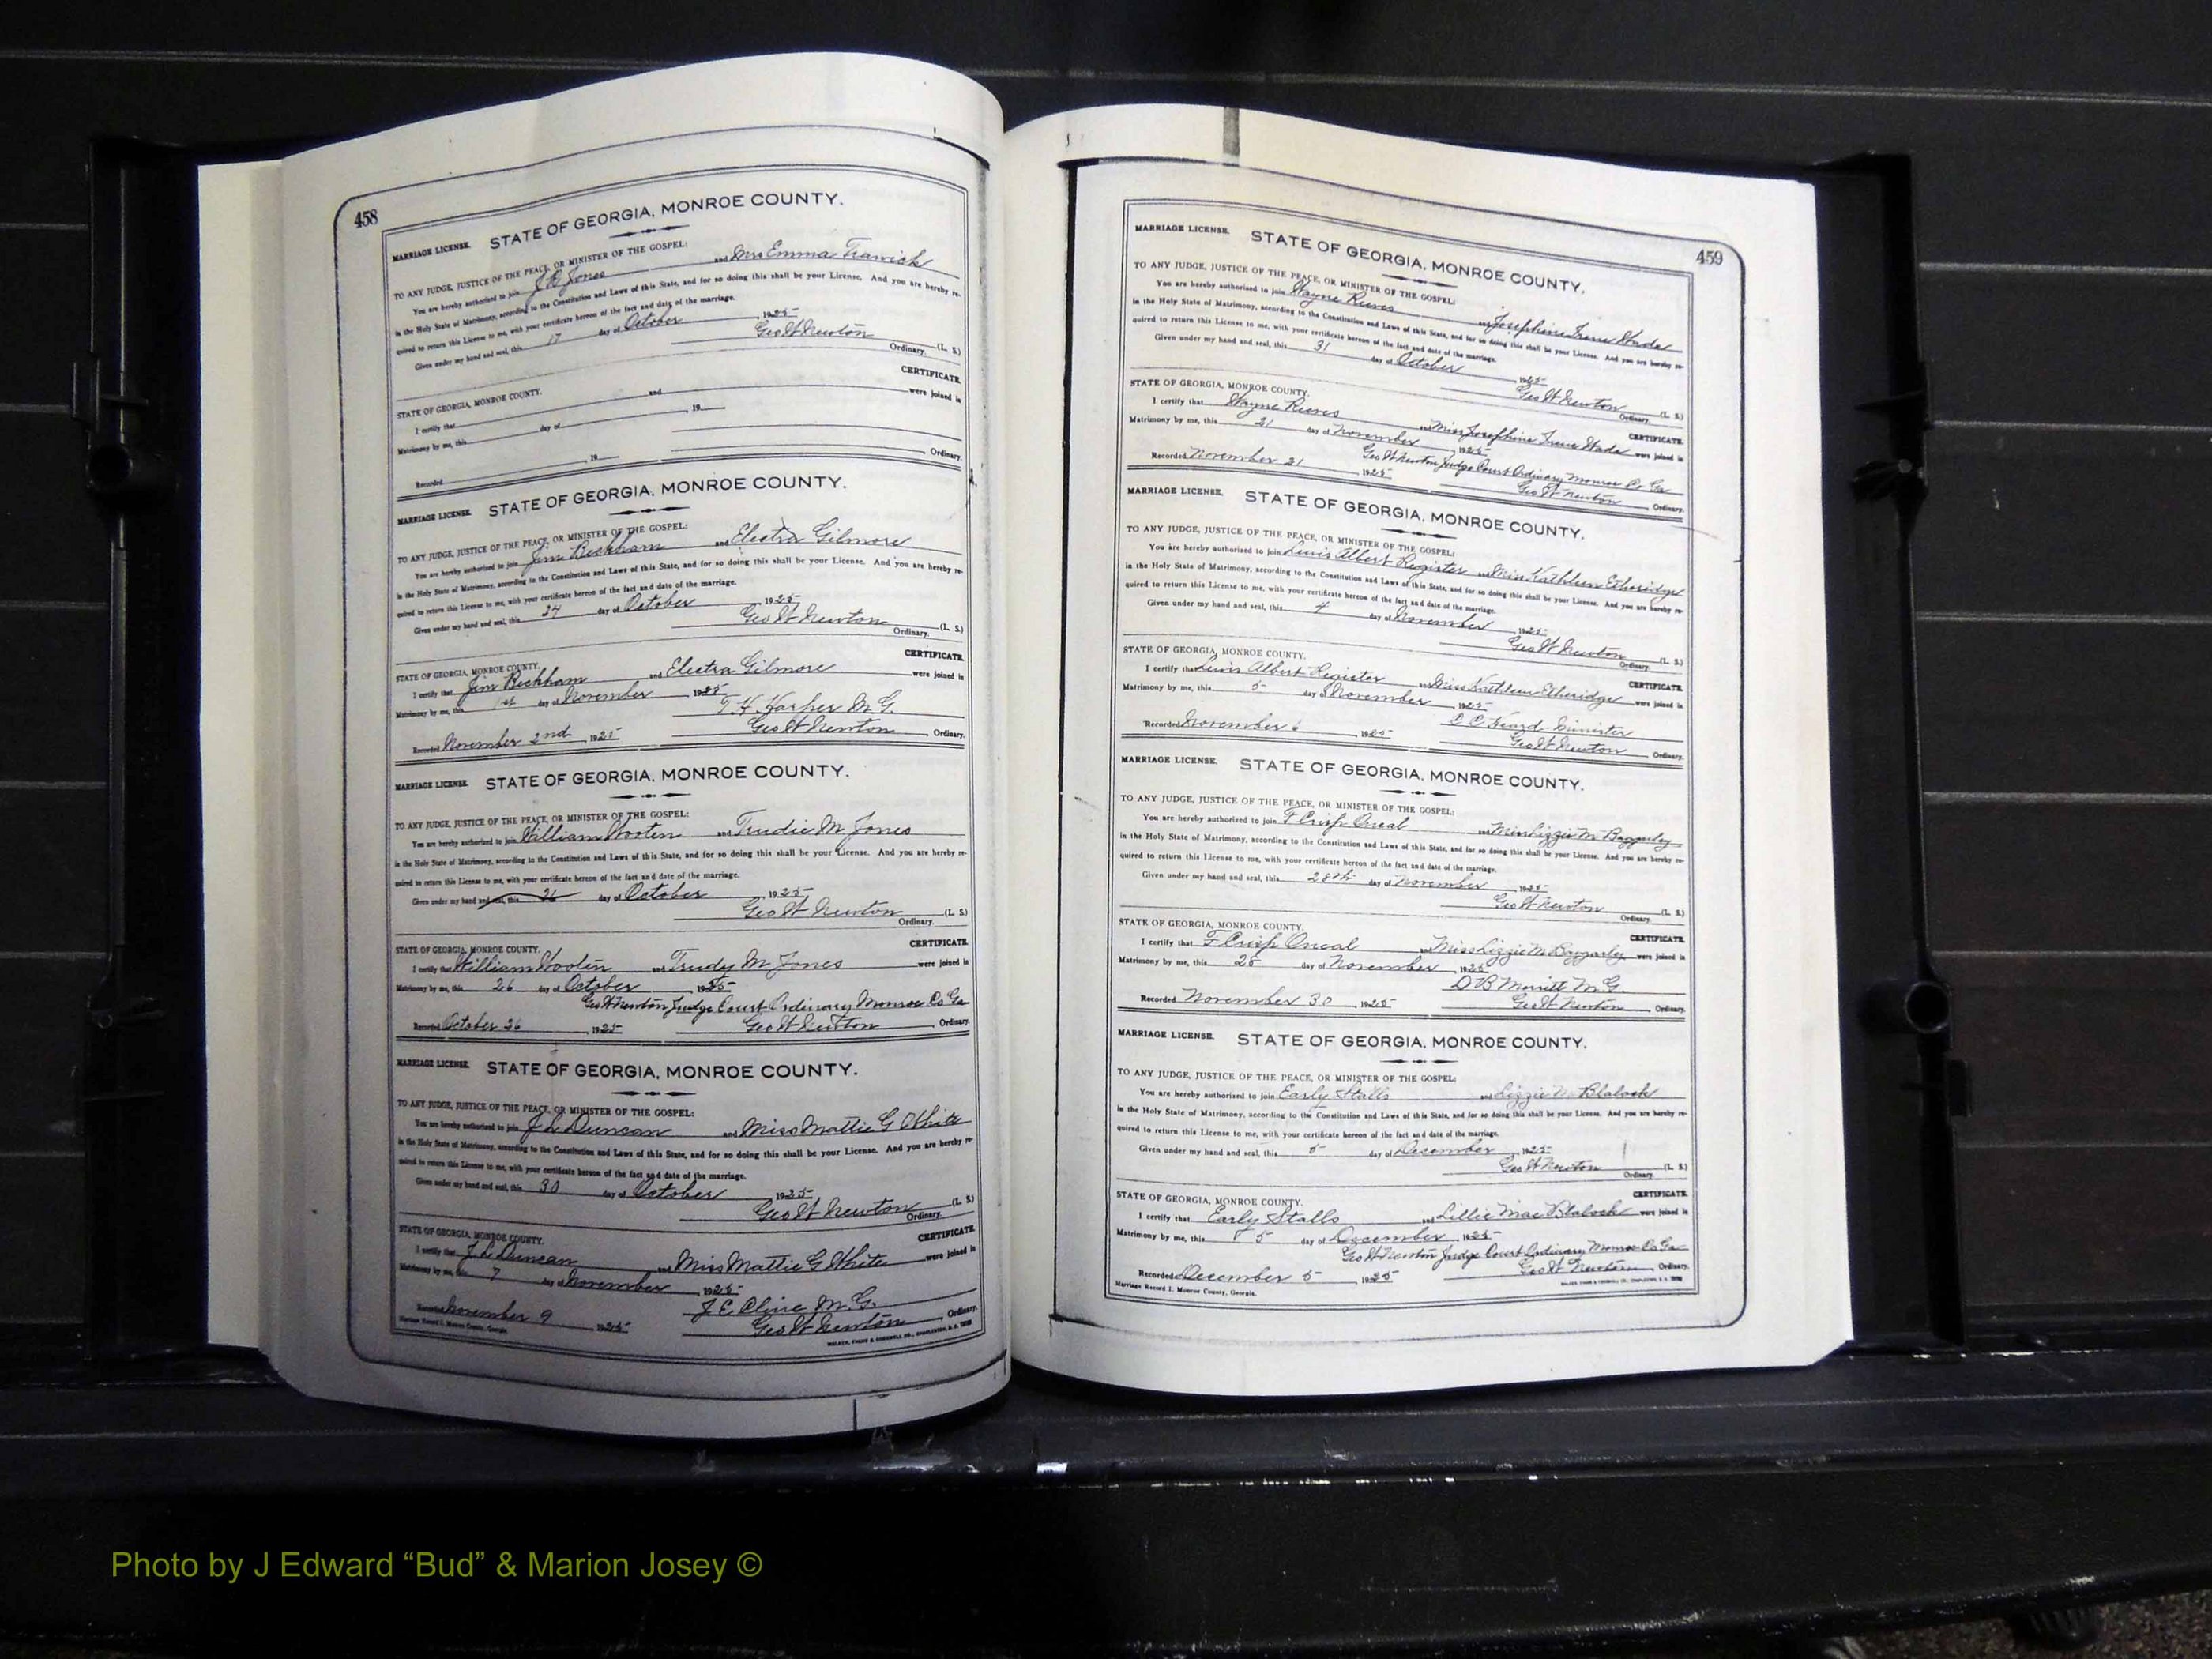 458
MARRIAGE LICENSE. STATE OF GEORGIA, MONROE COUNTY.
TO ANY JUDGE, JUSTICE OF THE PEACE, OR MINISTER OF THE GOSPEL:
You are hereby authorized to join J D Jones and Mrs Emma Trawick
in the Holy State of Matrimony, according to the Constitution and Laws of this State, and for so doing this shall be your License. And you are hereby re-
quired to return this License to me, with your certificate hereon of the fact and date of the marriage.
Given under my hand and seal, this 17 day of October, 1925
Geo W Newton (L. S.)
Ordinary.
CERTIFICATE.
STATE OF GEORGIA, MONROE COUNTY.
I certify that and were joined in
Matrimony by me, this day of , 19
Recorded , 19 Ordinary.
MARRIAGE LICENSE. STATE OF GEORGIA, MONROE COUNTY.
TO ANY JUDGE, JUSTICE OF THE PEACE, OR MINISTER OF THE GOSPEL:
You are hereby authorized to join Jim Beckham and Electra Gilmore
in the Holy State of Matrimony, according to the Constitution and Laws of this State, and for so doing this shall be your License. And you are hereby re-
quired to return this License to me, with your certificate hereon of the fact and date of the marriage.
Given under my hand and seal, this 24 day of October, 1925
Geo W Newton (L. S.)
Ordinary.
CERTIFICATE.
STATE OF GEORGIA, MONROE COUNTY.
I certify that Jim Beckham and Electra Gilmore were joined in
Matrimony by me, this 1st day of November, 1925
T. H. Harper M. G.
Recorded November 2nd, 1925 Geo W Newton, Ordinary.
MARRIAGE LICENSE. STATE OF GEORGIA, MONROE COUNTY.
TO ANY JUDGE, JUSTICE OF THE PEACE, OR MINISTER OF THE GOSPEL:
You are hereby authorized to join William Wooten and Trudie M Jones
in the Holy State of Matrimony, according to the Constitution and Laws of this State, and for so doing this shall be your License. And you are hereby re-
quired to return this License to me, with your certificate hereon of the fact and date of the marriage.
Given under my hand and seal, this 26 day of October, 1925
Geo W Newton (L. S.)
Ordinary.
CERTIFICATE.
STATE OF GEORGIA, MONROE COUNTY.
I certify that William Wooten and Trudy M Jones were joined in
Matrimony by me, this 26 day of October, 1925
Geo W Newton Judge Court Ordinary Monroe Co Ga
Recorded October 26, 1925 Geo W Newton, Ordinary.
MARRIAGE LICENSE. STATE OF GEORGIA, MONROE COUNTY.
TO ANY JUDGE, JUSTICE OF THE PEACE, OR MINISTER OF THE GOSPEL:
You are hereby authorized to join J L Duncan and Miss Mattie G White
in the Holy State of Matrimony, according to the Constitution and Laws of this State, and for so doing this shall be your License. And you are hereby re-
quired to return this License to me, with your certificate hereon of the fact and date of the marriage.
Given under my hand and seal, this 30 day of October, 1925
Geo W Newton (L. S.)
Ordinary.
CERTIFICATE.
STATE OF GEORGIA, MONROE COUNTY.
I certify that J L Duncan and Miss Mattie G White were joined in
Matrimony by me, this 7 day of November, 1925
J E Cline M. G.
Recorded November 9, 1925 Geo W Newton, Ordinary.
Marriage Record I. Monroe County, Georgia.
WALKER, EVANS & COGSWELL CO., CHARLESTON, S. C.
459
MARRIAGE LICENSE. STATE OF GEORGIA, MONROE COUNTY.
TO ANY JUDGE, JUSTICE OF THE PEACE, OR MINISTER OF THE GOSPEL:
You are hereby authorized to join Wayne Reeves and Josephine Irene Wade
in the Holy State of Matrimony, according to the Constitution and Laws of this State, and for so doing this shall be your License. And you are hereby re-
quired to return this License to me, with your certificate hereon of the fact and date of the marriage.
Given under my hand and seal, this 31 day of October, 1925
Geo W Newton (L. S.)
Ordinary.
CERTIFICATE.
STATE OF GEORGIA, MONROE COUNTY.
I certify that Wayne Reeves and Miss Josephine Irene Wade were joined in
Matrimony by me, this 21 day of November, 1925
Geo W Newton Judge Court Ordinary Monroe Co Ga
Recorded November 21, 1925 Geo W Newton, Ordinary.
MARRIAGE LICENSE. STATE OF GEORGIA, MONROE COUNTY.
TO ANY JUDGE, JUSTICE OF THE PEACE, OR MINISTER OF THE GOSPEL:
You are hereby authorized to join Lewis Albert Register and Miss Kathleen Etheridge
in the Holy State of Matrimony, according to the Constitution and Laws of this State, and for so doing this shall be your License. And you are hereby re-
quired to return this License to me, with your certificate hereon of the fact and date of the marriage.
Given under my hand and seal, this 4 day of November, 1925
Geo W Newton (L. S.)
Ordinary.
CERTIFICATE.
STATE OF GEORGIA, MONROE COUNTY.
I certify that Lewis Albert Register and Miss Kathleen Etheridge were joined in
Matrimony by me, this 5 day of November, 1925
C. C. Heard Minister
Recorded November 6, 1925 Geo W Newton, Ordinary.
MARRIAGE LICENSE. STATE OF GEORGIA, MONROE COUNTY.
TO ANY JUDGE, JUSTICE OF THE PEACE, OR MINISTER OF THE GOSPEL:
You are hereby authorized to join F Crisp Oneal and Miss Lizzie M Baggarley
in the Holy State of Matrimony, according to the Constitution and Laws of this State, and for so doing this shall be your License. And you are hereby re-
quired to return this License to me, with your certificate hereon of the fact and date of the marriage.
Given under my hand and seal, this 28th day of November, 1925
Geo W Newton (L. S.)
Ordinary.
CERTIFICATE.
STATE OF GEORGIA, MONROE COUNTY.
I certify that F Crisp Oneal and Miss Lizzie M Baggarley were joined in
Matrimony by me, this 28 day of November, 1925
D B Merritt M. G.
Recorded November 30, 1925 Geo W Newton, Ordinary.
MARRIAGE LICENSE. STATE OF GEORGIA, MONROE COUNTY.
TO ANY JUDGE, JUSTICE OF THE PEACE, OR MINISTER OF THE GOSPEL:
You are hereby authorized to join Early Stalls and Lizzie M Blalock
in the Holy State of Matrimony, according to the Constitution and Laws of this State, and for so doing this shall be your License. And you are hereby re-
quired to return this License to me, with your certificate hereon of the fact and date of the marriage.
Given under my hand and seal, this 5 day of December, 1925
Geo W Newton (L. S.)
Ordinary.
CERTIFICATE.
STATE OF GEORGIA, MONROE COUNTY.
I certify that Early Stalls and Lillie Mae Blalock were joined in
Matrimony by me, this 5 day of December, 1925
Geo W Newton Judge Court Ordinary Monroe Co Ga
Recorded December 5, 1925 Geo W Newton, Ordinary.
Marriage Record I. Monroe County, Georgia.
WALKER, EVANS & COGSWELL CO., CHARLESTON, S. C.
Photo by J Edward “Bud” & Marion Josey ©